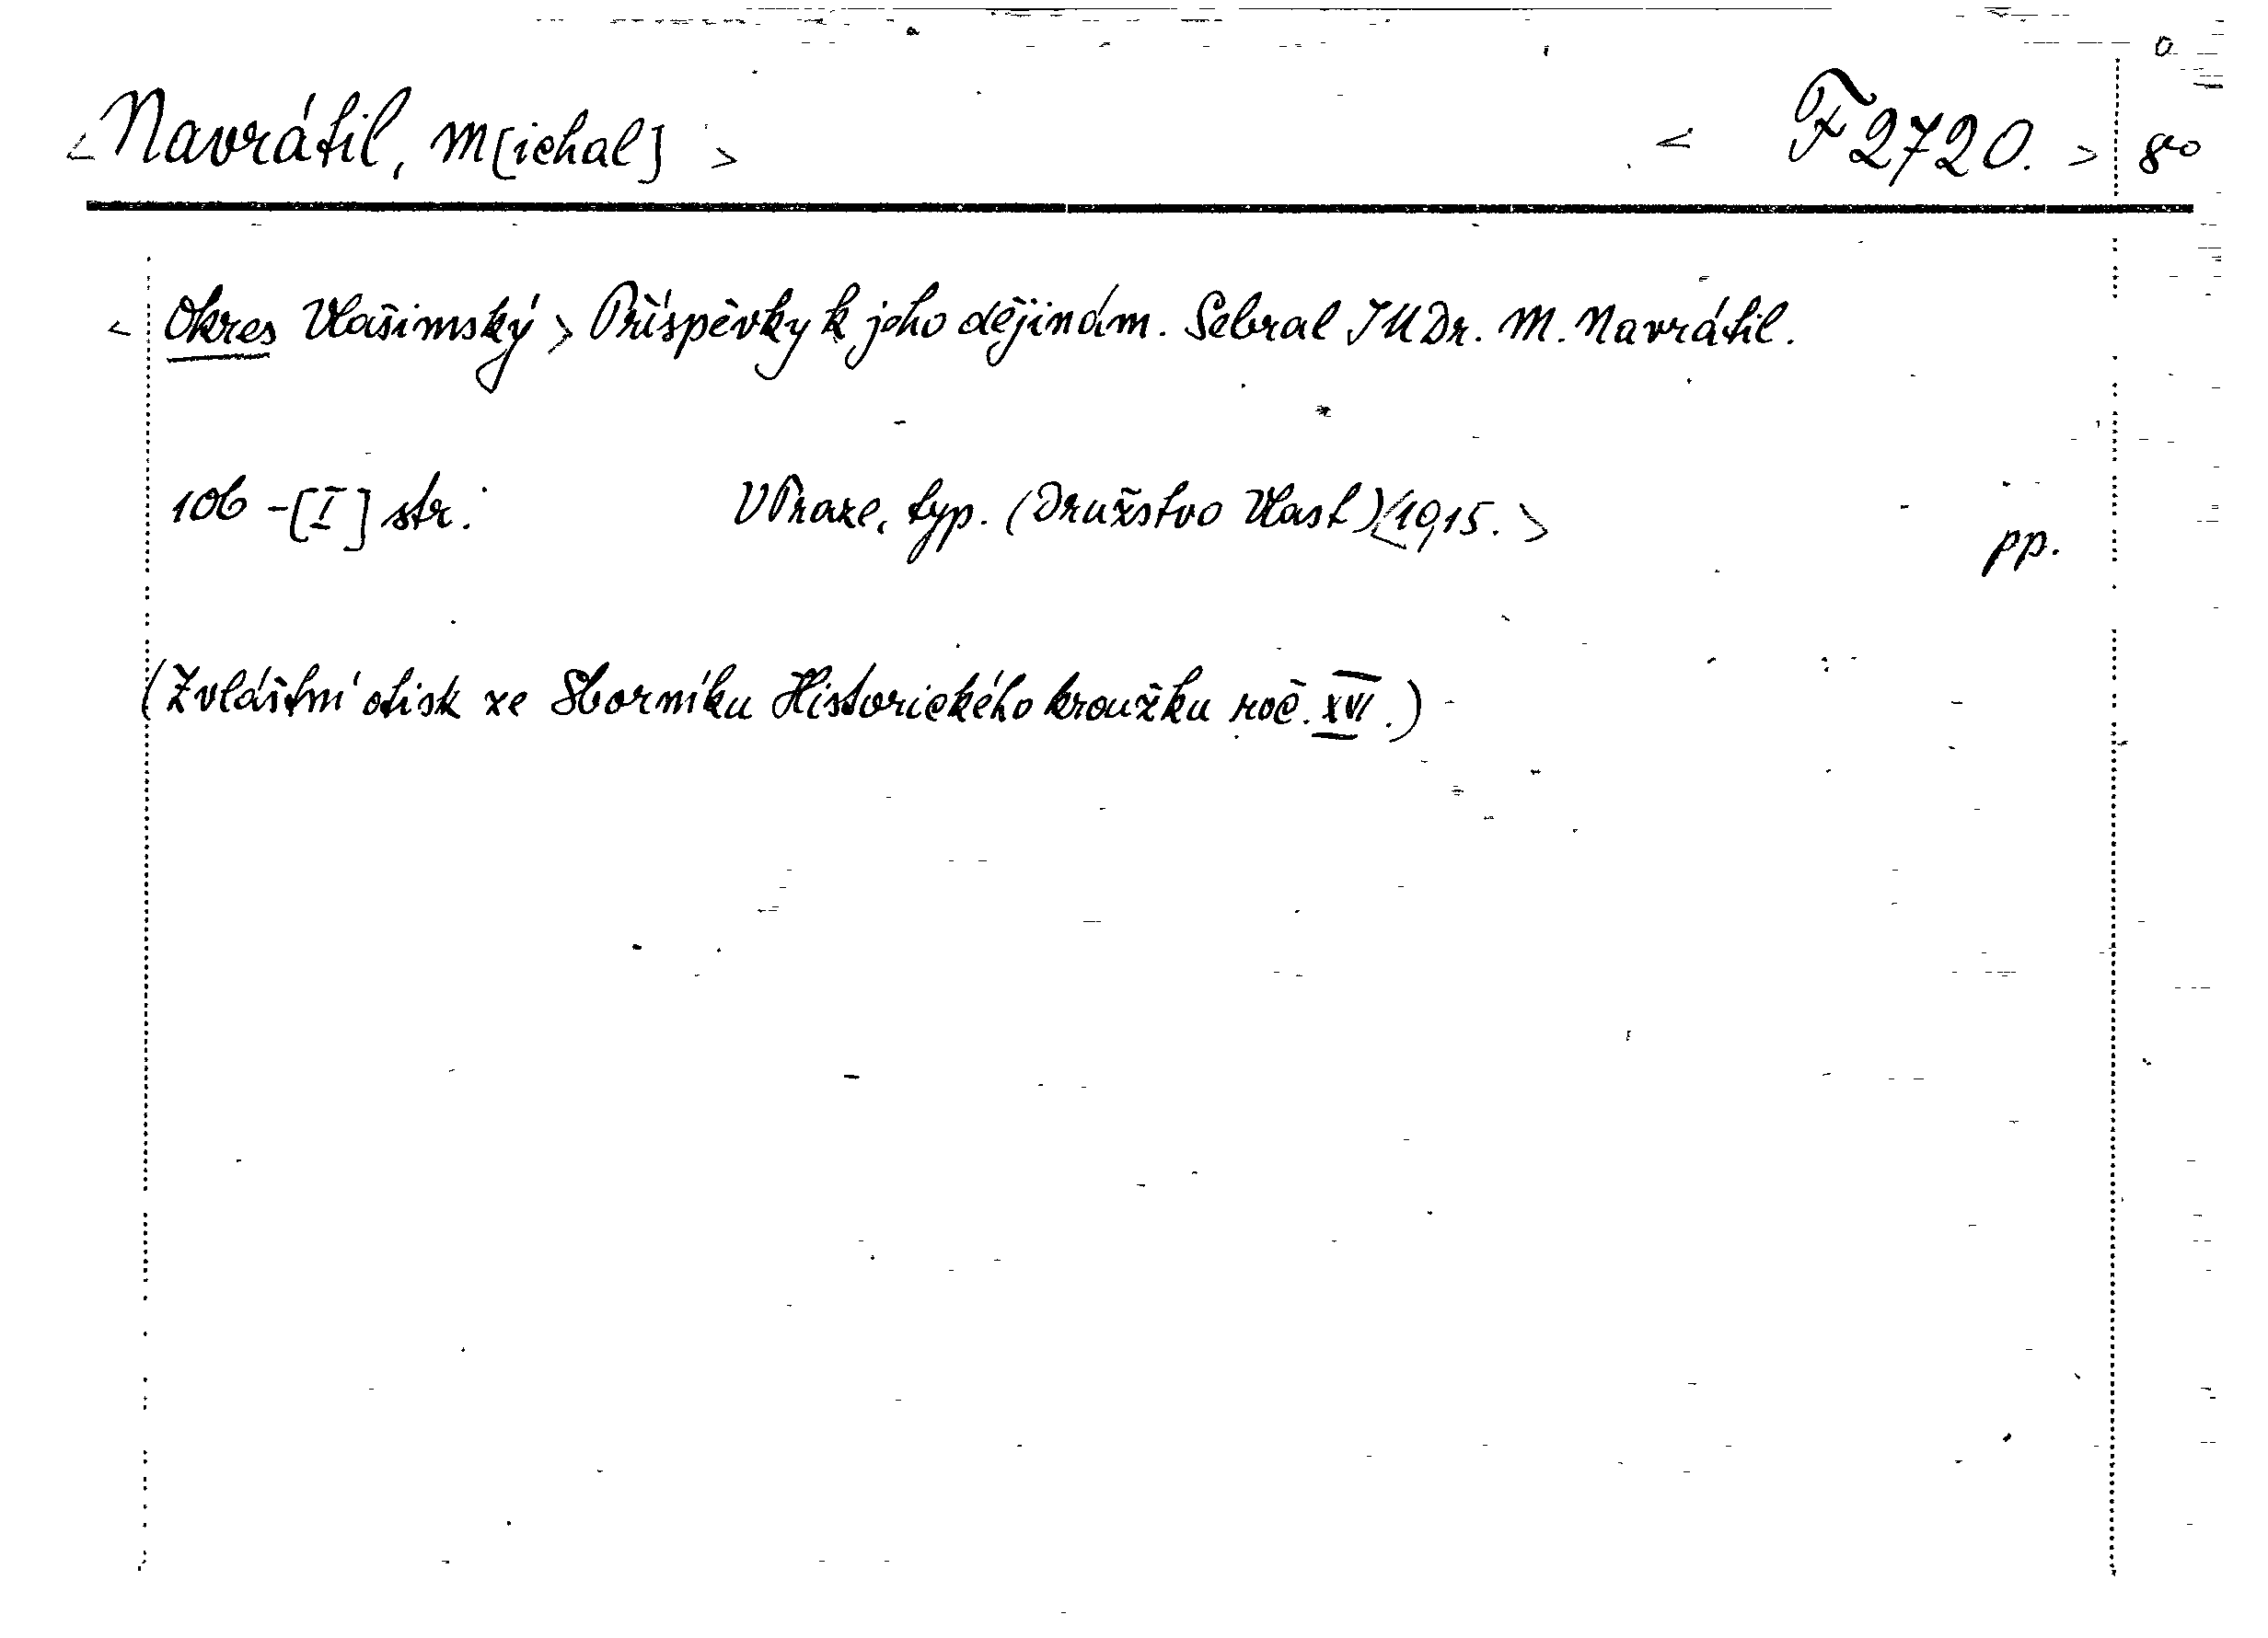 <Navrátil, M[ichal]> <F 2720.> 8°
<Okres Vlašimský> Příspěvky k jeho dějinám. Sebral JUDr. M. Navrátil.
106 -[I] str. V Praze, typ. (Družstvo Vlast) <1915.>
pp.
(Zvláštní otisk ze Sborníku Historického kroužku roč. XVI.)